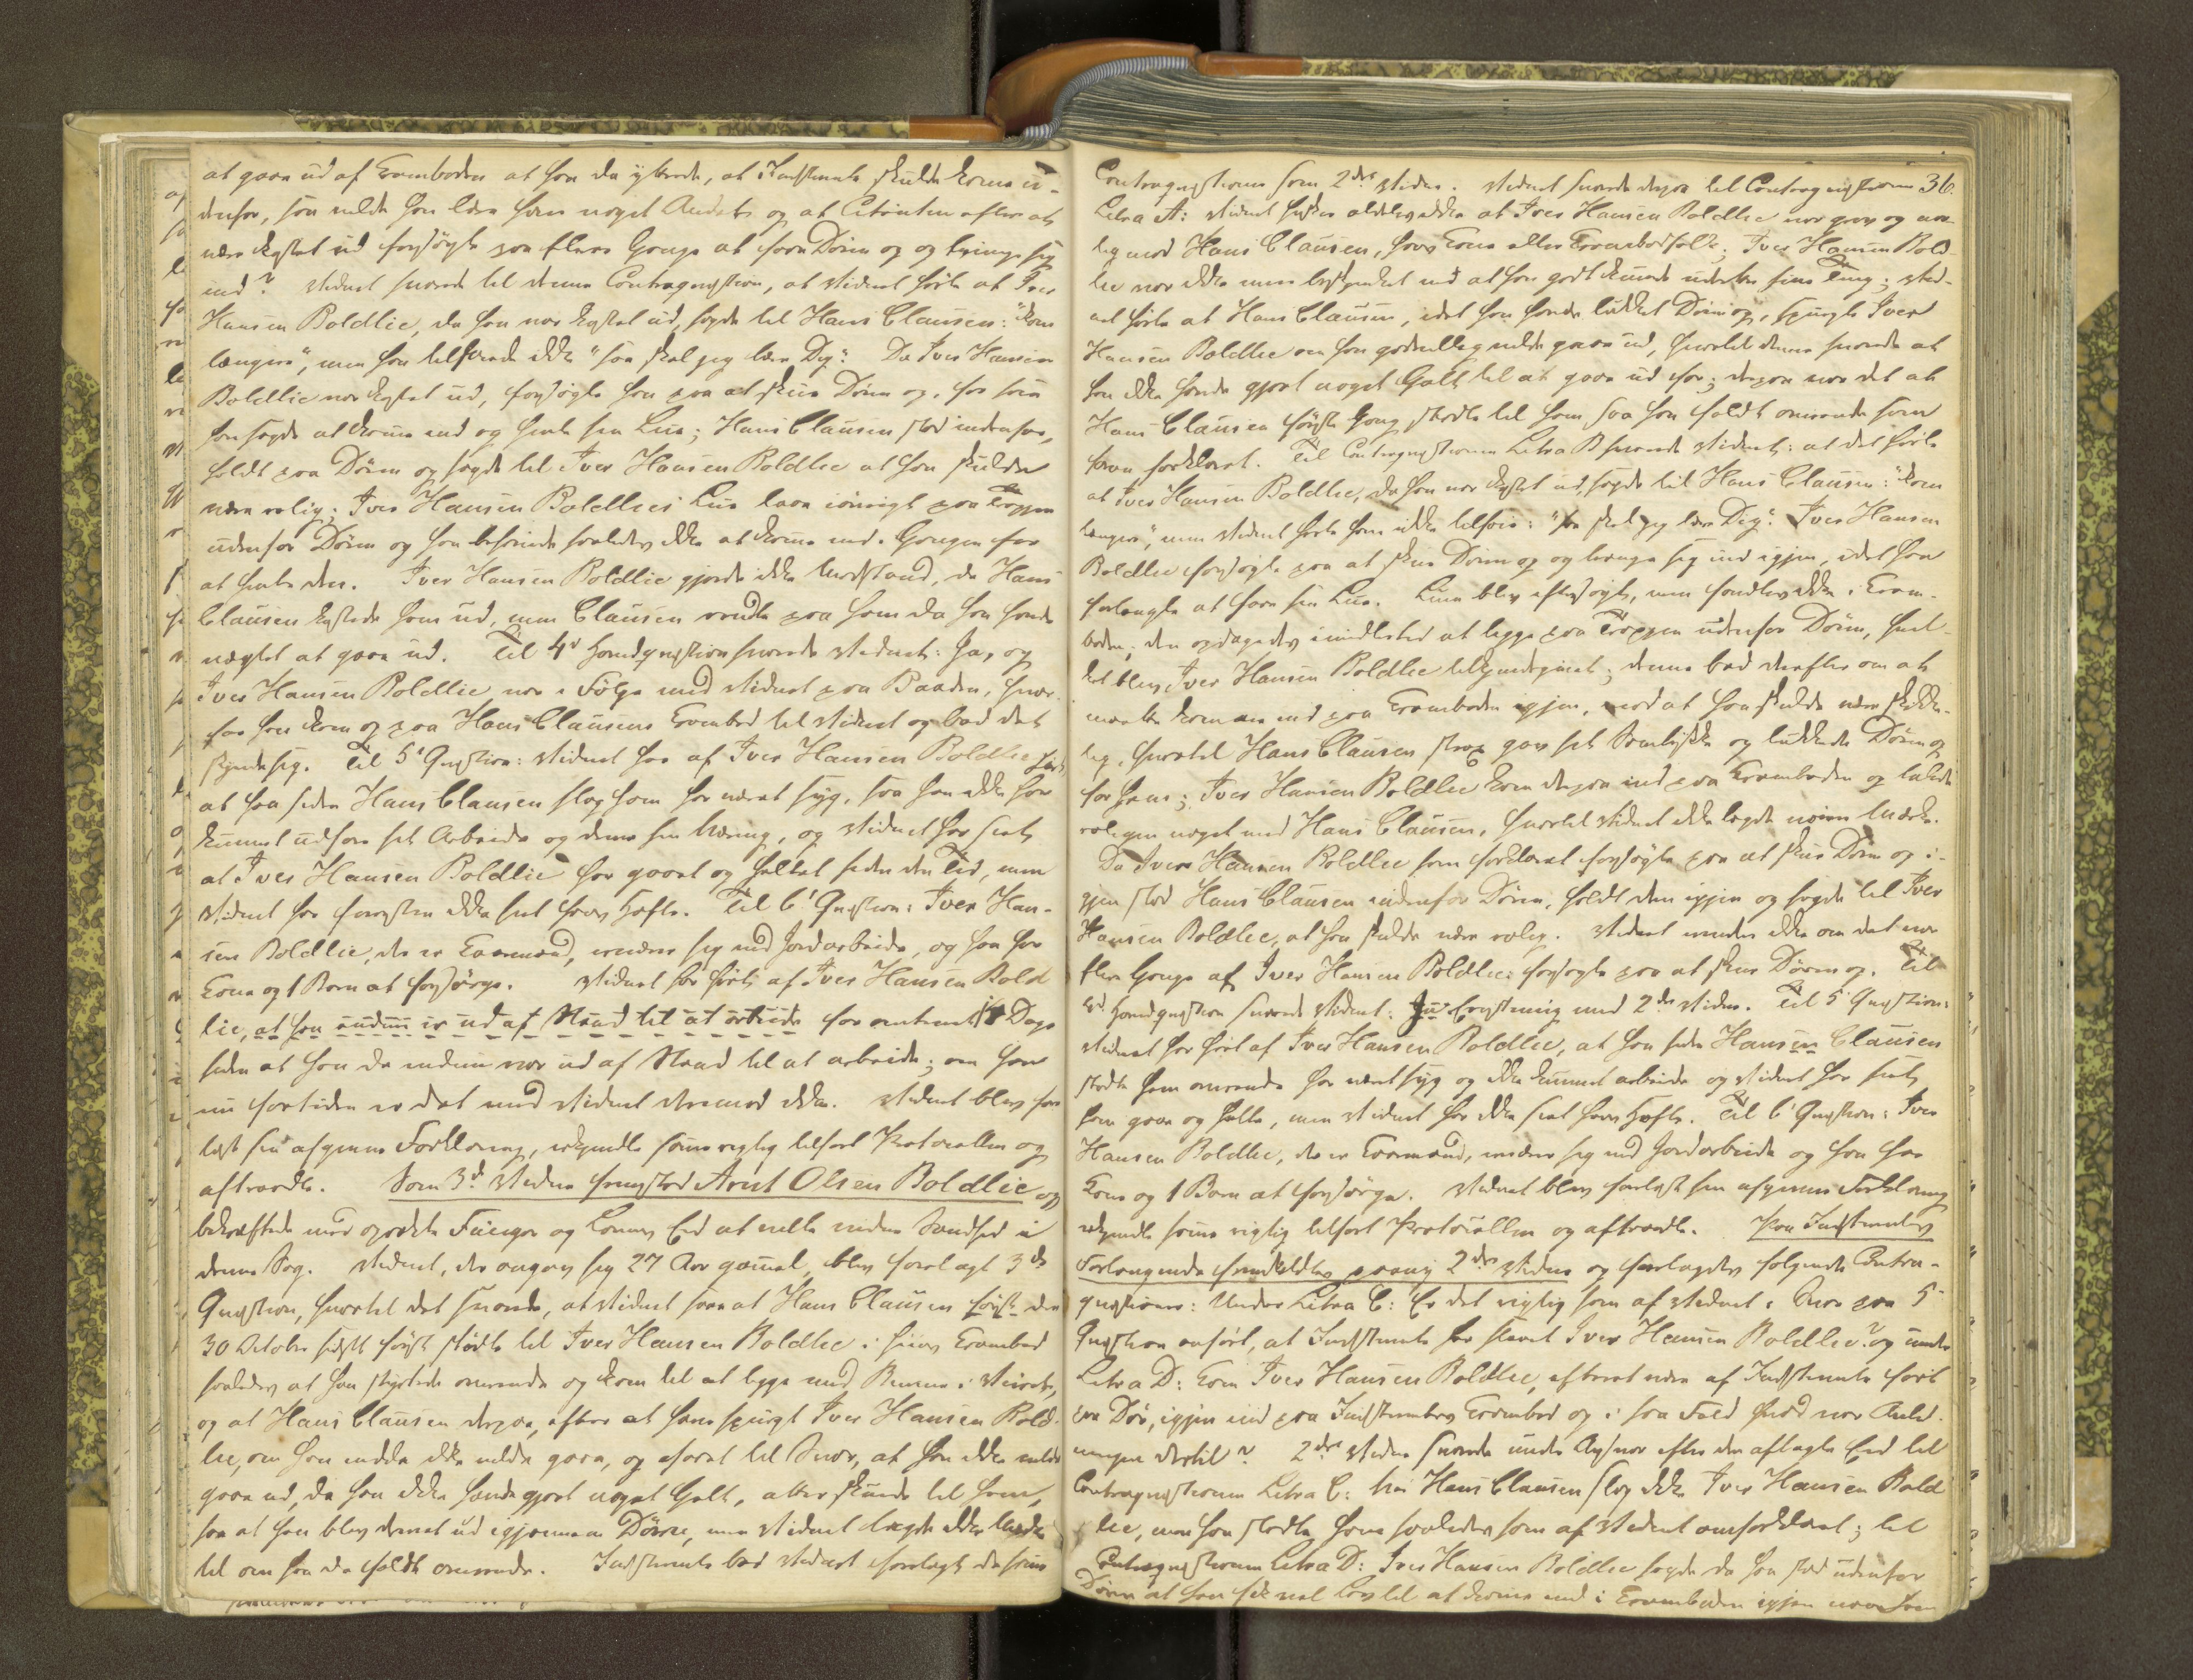 at gaa ud af Kramboden at han da ytrede, at Indstevnte skulde komme u-
denfor, saa vilde han lære ham noget Andet og at Citanten efter at
være kastet ud forsøgte paa flere Gange at faae Døren op og trænge sig
ind? Vidnet svarede til denne Contraqvæstion, at Vidnet hørte at Iver
Hansen Boldlie, da han var kastet ud, sagde til Hans Clausen: "kom
længere", men han tilføiede ikke "saa skal jeg lære Dig". Da Iver Hansen
Boldlie var kastet ud, forsøgte han paa at skue Døren op, for som
han sagde at komme ind og hente sin Lue; Hans Clausen stod indenfor,
holdt paa Døren og sagde til Iver Hansen Boldlie at han skulde
være rolig; Iver Hansen Boldlies Lue laae imidlertid paa Trappen
udenfor Døren og han behøvede saaledes ikke at komme ind i Gangen for
at hente den. Iver Hansen Boldlie gjorde ikke Modstand, da Hans
Clausen kastede ham ud, men Clausen rendte paa ham da han havde
nægtet at gaa ud. Til 4de Hovedqvæstion svarede Vidnet: Ja, og
Iver Hansen Boldlie var i Følge med Vidnet paa Baaden, hvor-
for han kom op paa Hans Clausens Krambod til Vidnet og bad det
skynde sig. Til 5te Qvæstion: Vidnet har af Iver Hansen Boldlie hørt,
at han siden Hans Clausen slog ham har været syg, saa han ikke har
kunnet udføre sit Arbeide og denne sin Næring, og Vidnet har seet,
at Iver Hansen Boldlie har gaaet og haltet siden den Tid, men
Vidnet har forresten ikke seet hans Hofte. Til 6te Qvæstion: Iver Han-
sen Boldlie, der er Evermand, ernærer sig ved Jordarbeide, og han har
Kone og 1 Barn at forsørge. Vidnet har hørt af Iver Hansen Bold
lie, at han endnu er ud af Stand til at arbeide for omtrent 14 Dage
siden at han da endnu var ud af Stand til at arbeide; om han
nu fortiden er det veed Vidnet derimod ikke. Vidnet blev fore-
læst sin afgivne Forklaring, vedgik samme rigtig tilført Protocollen og
aftraadte. Som 3die Vidne fremstod Arnt Olsen Boldlie og
bekræftede med oprakte Fingre og Lovens Eed at ville vidne Sandhed i
denne Sag. Vidnet, der angav sig 27 Aar gammel, blev forelagt 3de
Qvæstion, hvortil det svarede, at Vidnet saae at Hans Clausen først den
30 October sidst først stødte til Iver Hansen Boldlie i hans Krambod
saaledes at han styrtede overende og kom til at ligge med Benene i Veiret,
og at Hans Clausen derpaa, efter at have spurgt Iver Hansen Bold-
lie, om han endda ikke vilde gaa, og efterat til Svar, at han ikke vilde
gaa ud, da han ikke havde gjort noget Galt, atter skuede til ham,
saa at han blev drevet ud igjennem Døren, men Vidnet lagde ikke Mærke
til om han da faldt overende. Indstevnte bad Vidnet forelagt de samme
Contraqvæstioner som 2det Vidne. Vidnet svarede derpaa til Contraqvæstionen 36.
Litra A: Vidnet husker aldeles ikke at Iver Hansen Boldlie var grov og uro-
lig mod Hans Clausen, hans Kone eller Krambodfolk; Iver Hansen Bold-
lie var ikke mere beskjenket end at han godt kunde udrette sine Ting; Vid-
net hørte at Hans Clausen, idet han havde lukket Døren op, spurgte Iver
Hansen Boldlie om han godvillig vilde gaa ud, hvortil denne svarede at
han ikke havde gjort noget Galt til at gaa ud for; derpaa var det at
Hans Clausen første Gang stødte til ham saa han faldt overende som
foran forklaret. Til Contraqvæstionen Litra B svarede Vidnet: at det hørte
at Iver Hansen Boldlie, da han var kastet ud, sagde til Hans Clausen: "kom
længere", men Vidnet hørte ham ikke tilføie: "saa skal jeg lære Dig". Iver Hansen
Boldlie forsøgte paa at skue Døren op og trænge sig ind igjen, idet han
forlangte at faae sin Lue. Luen blev eftersøgt, men fandtes ikke i Kram-
boden; den opdagedes imidlertid at ligge paa Trappen udenfor Døren, hvil-
ket blev Iver Hansen Boldlie tilkjendegivet; denne bad derefter om at
maatte komme ind paa Kramboden igjen, mod at han skulde være skikke-
lig, hvortil Hans Clausen strax gav sit Samtykke og lukkede Døren op
for ham; Iver Hansen Boldlie kom derpaa ind paa Kramboden og talede
roligen noget med Hans Clausen, hvortil Vidnet ikke lagde nøiere Mærke.
Da Iver Hansen Boldlie som forklaret forsøgte paa at skue Døren op i-
gjen stod Hans Clausen indenfor Døren, holdt den igjen og sagde til Iver
Hansen Boldlie, at han skulde være rolig. Vidnet mindes ikke om det var
flere Gange af Iver Hansen Boldlie forsøgte paa at skue Døren op. Til
4de Hovedqvæstion svarede Vidnet: Overensstemmig med 2det Vidne. Til 5te Qvæstion:
Vidnet har hørt af Iver Hansen Boldlie, at han siden Hansen Clausen
stødte ham overende har været syg og ikke kunnet arbeide og Vidnet har seet
ham gaa og halte, men Vidnet har ikke seet hans Hofte. Til 6te Qvæstion: Iver
Hansen Boldlie, der er Evermand, ernærer sig ved Jordarbeide og han har
Kone og 1 Barn at forsørge. Vidnet blev forelæst sin afgivne Forklaring
vedgik samme rigtig tilført Protocollen og aftraadte. Paa Indstevntes
Forlangende fremkaldtes paany 2det Vidne og forelagdes følgende Contra-
qvæstioner: Under Litra C: Er det rigtig som af Vidnet i Svar paa 5te
Qvæstion anført, at Indstevnte har slaaet Iver Hansen Boldlie? og under
Litra D: Kom Iver Hansen Boldlie, efterat være af Indstevnte ført
paa Dør, igjen ind paa Indstevntes Krambod og i saa Fald hvad var Anled-
ningen dertil? 2det Vidne svarede under Ansvar efter den aflagte Eed til
Contraqvæstionen Litra C: Nei Hans Clausen slog ikke Iver Hansen Bold
lie, men han stødte ham saaledes som af Vidnet omforklaret; til
Contraqvæstionen Litra D: Iver Hansen Boldlie sagde da han stod udenfor
Døren at han fik vel Lov til at komme ind i Kramboden igjen